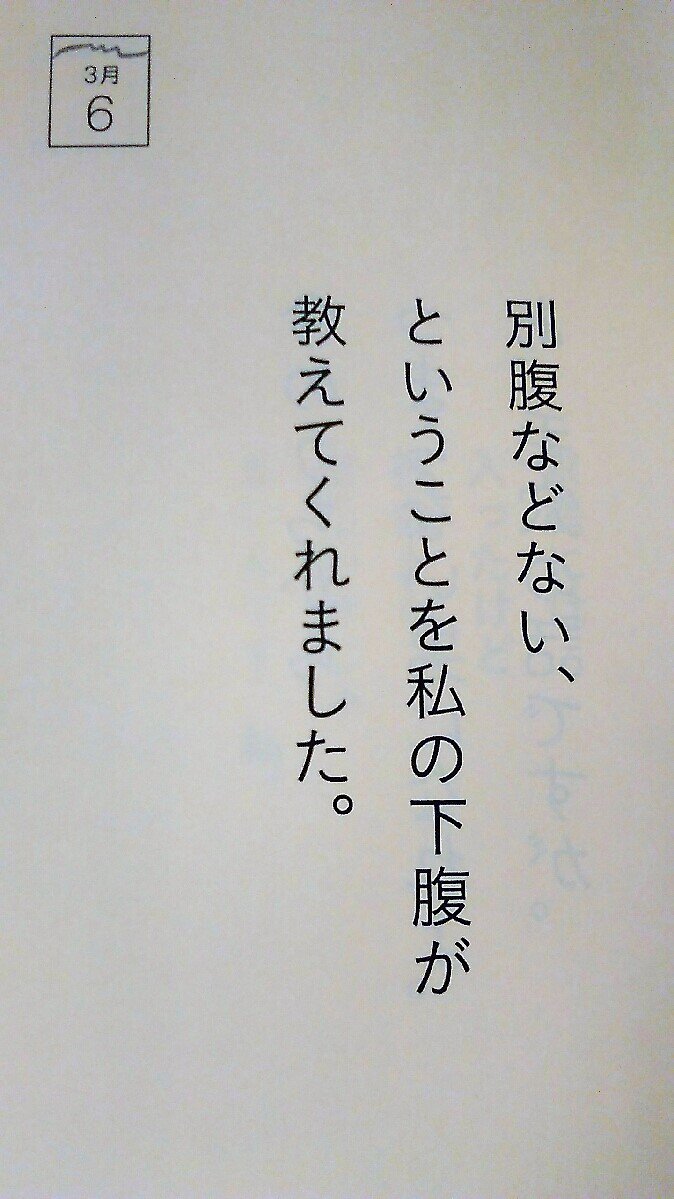 3月
6
別腹などない、
ということを私の下腹が
教えてくれました。